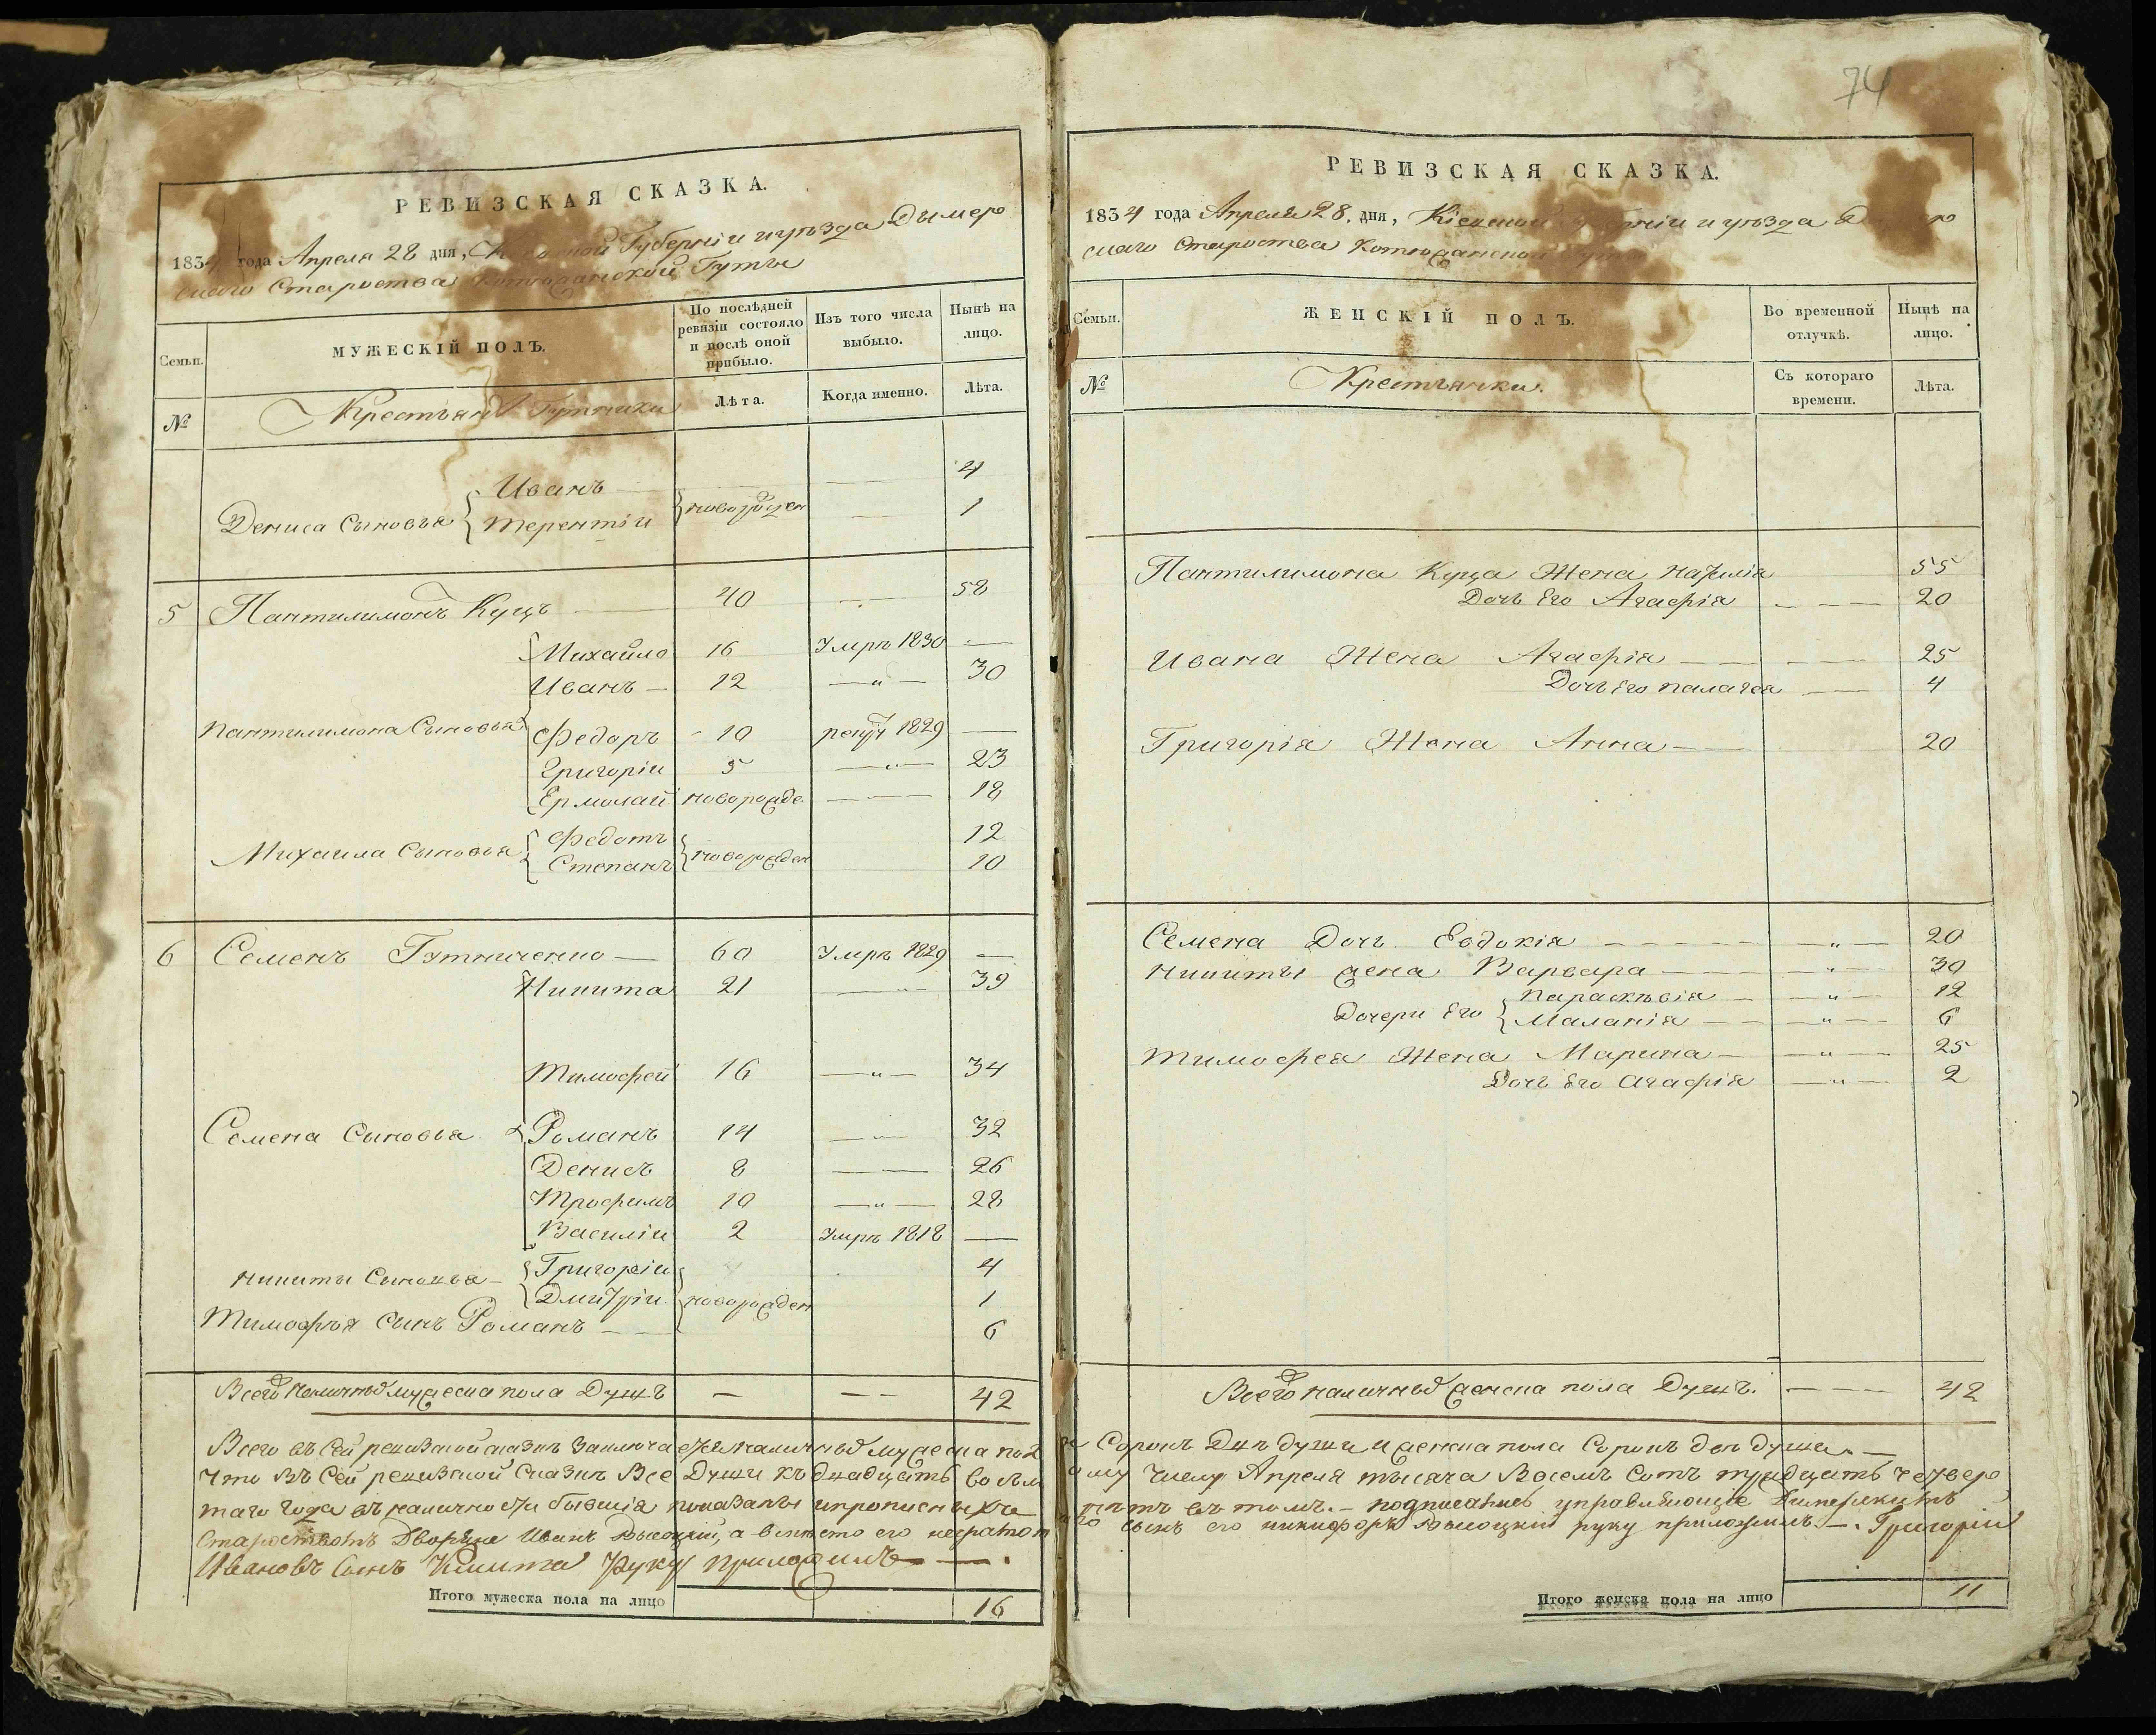 РЕВИЗСКАЯ СКАЗКА.
183 года Апреля 28 дня, Губерніи и уѣзда Дымер
скаго Староства Гуты
Семьи.
МУЖЕСКІЙ ПОЛЪ.
По послѣдней ревизіи состояло и послѣ оной прибыло.
Изъ того числа выбыло.
Нынѣ на лицо.
№
Крестьяне Гутники
Лѣта.
Когда именно.
Лѣта.
Иванъ — 4
Дениса Сыновья Терентіи новорожден 1
5 Пантилимонъ Куцъ — 40 — 58
Михайло 16 Умръ 1830 —
Иванъ — 12 — " — 30
Пантилимона Сыновья
Федоръ - 10 1829 —
Григоріи 5 — " — 23
Ермолай новорожде — 18
Федотъ 12
Михаила Сыновья новорожден
Степанъ 10
6 Семенъ Гутниченко — 60 Умръ 1829 —
Никита 21 — " — 39
Тимофей 16 — " — 34
Семена Сыновья Романъ 14 — " — 32
Денисъ 8 — 26
Трофимъ 10 — " — 28
Василіи 2 Умръ 1818 —
Григоріи 4
Никиты Сыновья —
Дмитріи новорожден 1
Тимофѣя Сынъ Романъ — 6
Всего наличныхъ мужеска пола Душъ — — — 42
Всего въ Сей ревизской сказкѣ Заключа ется наличныхъ мужеска пол
Что въ Сей ревизской Сказки Все Души къ двадцать восьм
таго года въ наличности бывшія показаны и прописныхъ
Дворянин Иванъ Высоцкій, а вместо его неграмот
Ивановъ Сынъ Руку приложилъ — .
Итого мужеска пола на лицо 16
74
РЕВИЗСКАЯ СКАЗКА.
1834 года Апреля 28. дня, Кіевской и уѣзда
скаго Староства
Семьи.
ЖЕНСКІЙ ПОЛЪ.
Во временной отлучкѣ.
Нынѣ на лицо.
№
Крестьянки.
Съ котораго времени.
Лѣта.
Пантилимона Куца Жена Наталія 55
Дочь Его Агафія — 20
Ивана Жена Агафія — 25
Дочь его Палагея — 4
Григорія Жена Анна — 20
Семена Дочь Евдокія — " — 20
Никиты жена Варвара — " — 30
Параскѣвія — " — 12
Дочери Его
Маланія — " — 6
Тимофея Жена Марина — " — 25
Дочь его Агафія — " — 2
Всего наличныхъ женска пола Душъ. — 42
Сорокъ Двѣ души и женска пола Сорокъ две души. —
ому числу Апреля тысяча Восемъ Сотъ тридцать четвер
нѣтъ въ томъ. — подписались управляющіе
сынъ его Никифоръ Высоцкій руку приложилъ. — . Григорій
Итого женска пола на лицо 11